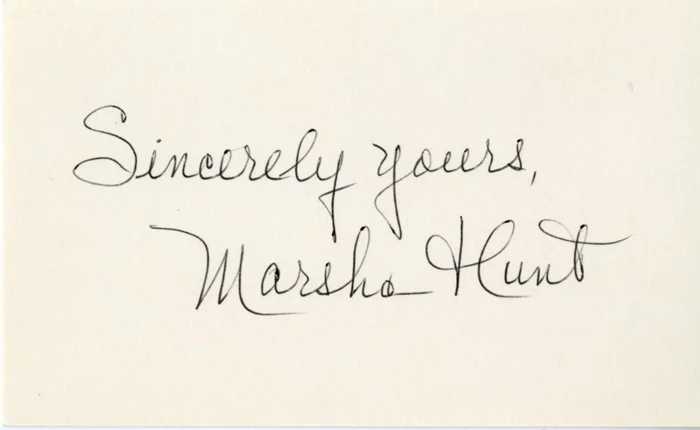 Sincerely yours,
Marsha Hunt